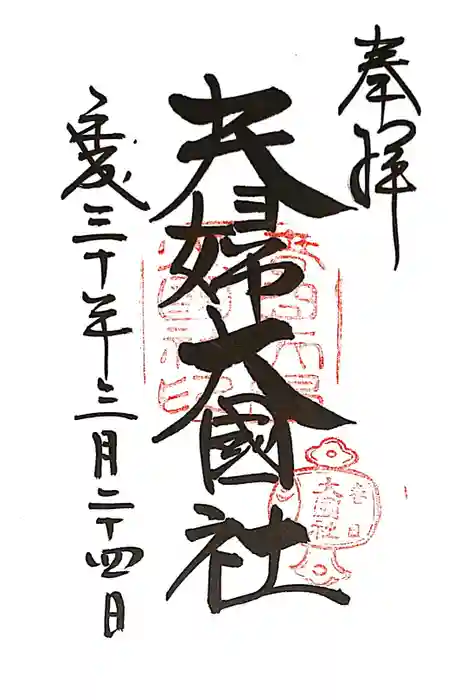 奉拝
夫婦大國社
平成三十年三月二十四日
春日
大國社